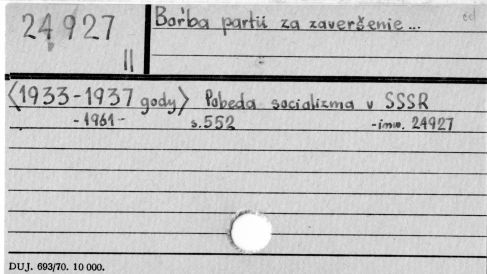 24927
II
Bor'ba partii za zaveršenie...
<1933-1937 gody> Pobeda socializma v SSSR
-1961- s.552 -inw. 24927
DUJ. 693/70. 10 000.